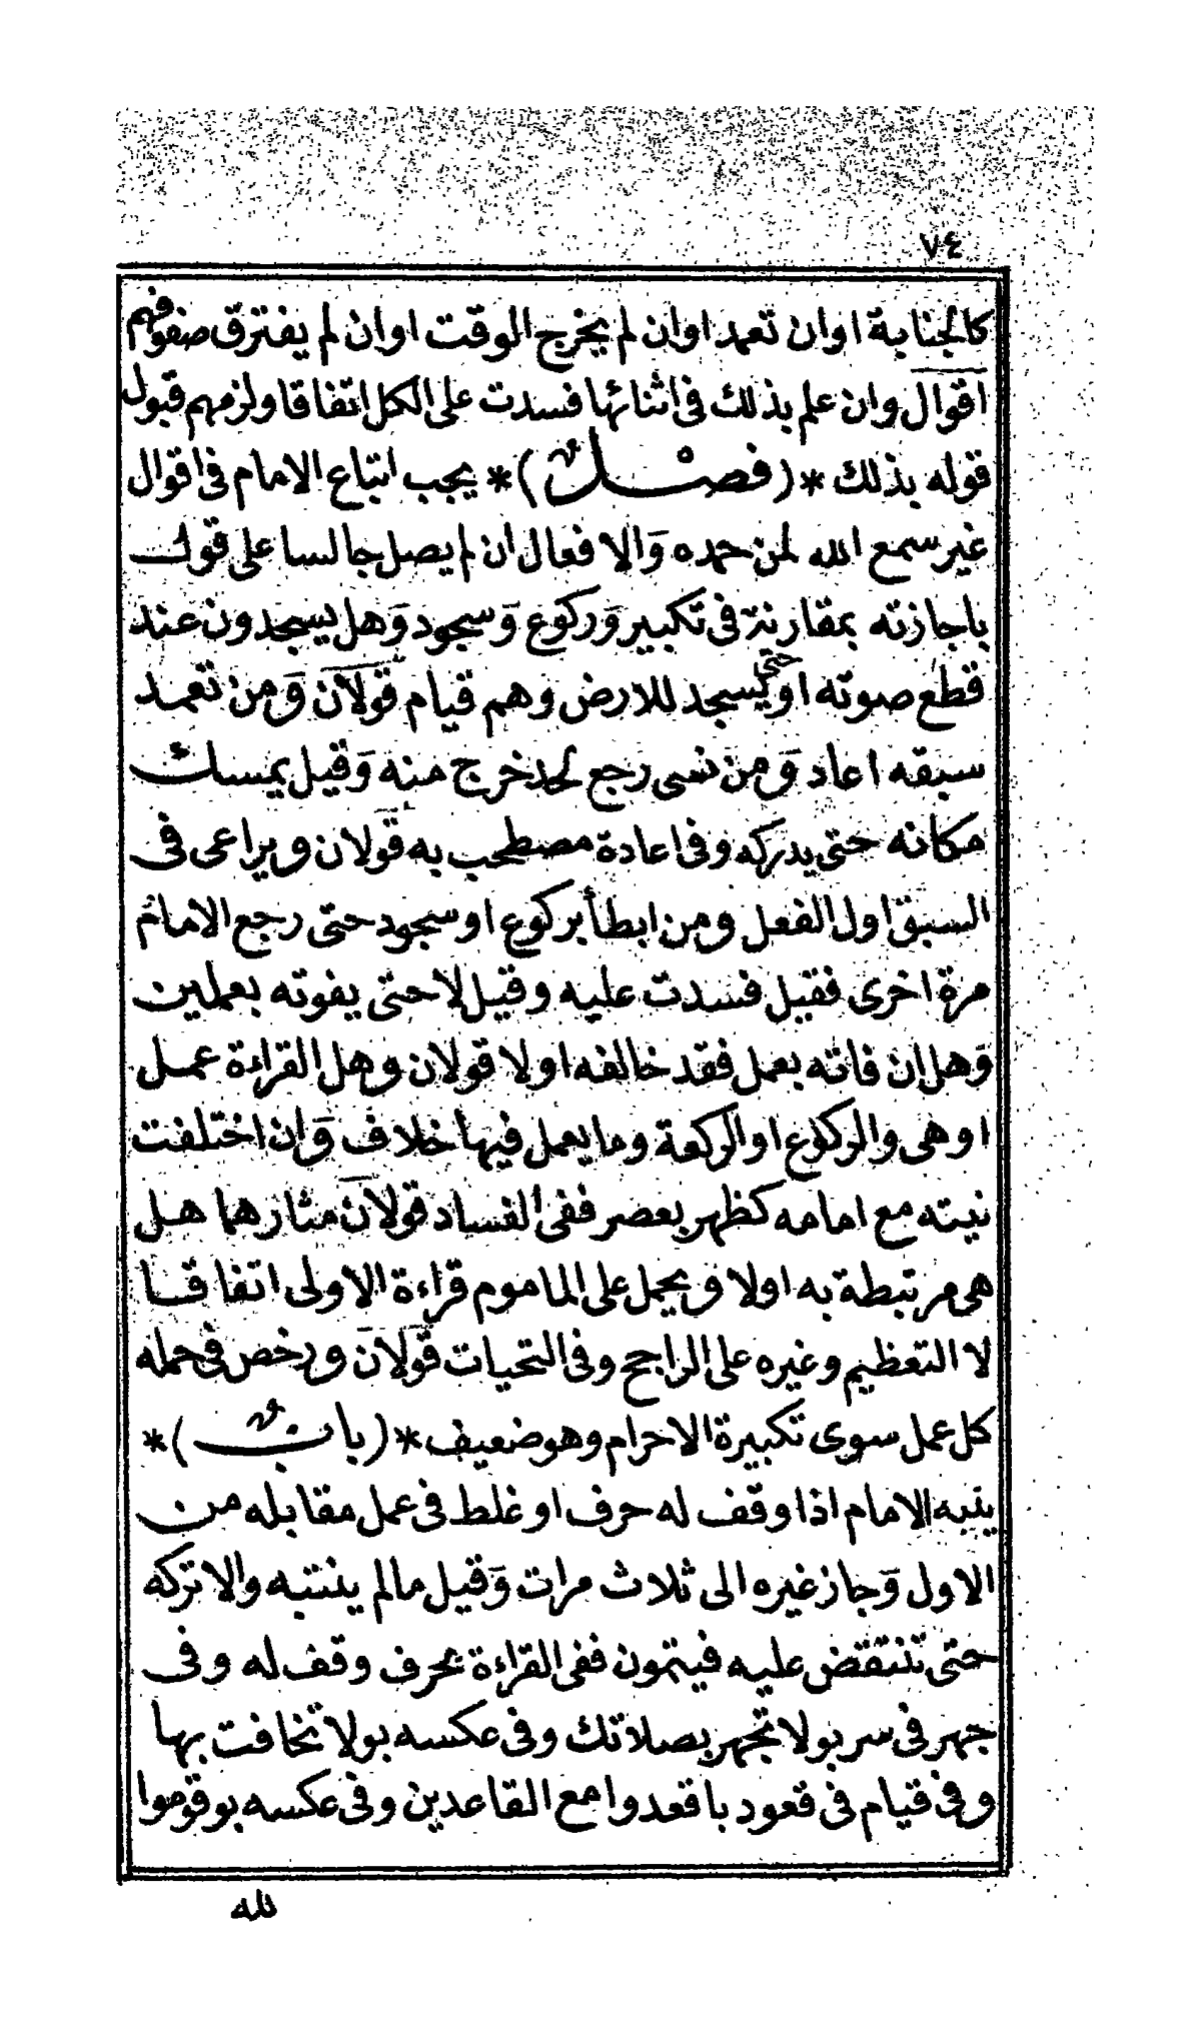 ٧٤
كالجنابة اوان تعمد اوان لم يخرج الوقت اوان لم يفترق صفوفهم
اقوال وان علم بذلك فى اثنائها فسدت على الكل اتفاقا ولزمهم قبول
قوله بذلك *(فصل)* يجب اتباع الامام فى اقوال
غير سمع الله لمن حمده وَالافعال ان لم يصل جالسا على قول
باجازته بمقارنة فى تكبير وَركوع وَسجود وَهل يسجدون عند
قطع صوته او حتى يسجد للارض وهم قيام قولان وَمن تعمد
سبقه اعاد وَمن نسى رجع لحد خرج منه وَقيل يمسك
مكانه حتى يدركه وفى اعادة مصطحب به قولان ويراعى فى
السبق اول الفعل ومن ابطأ بركوع او سجود حتى رجع الامام
مرة اخرى فقيل فسدت عليه وقيل لا حتى يفوته بعملين
وَهل ان فاته بعمل فقد خالفه اولا قولان وهل القراءة عمل
او هى والركوع او الركعة وما يعمل فيها خلاف وَان اختلفت
نيته مع امامه كظهر بعصر ففى الفساد قولان مثارهما هل
هى مرتبطة به اولا ويحمل على الماموم قراءة الاولى اتفاقا
لا التعظيم وغيره على الراجح وفى التحيات قولان ورخص فى حمله
كل عمل سوى تكبيرة الاحرام وهو ضعيف *(باب)*
ينبه الامام اذا وقف له حرف او غلط فى عمل مقابله من
الاول وَجاز غيره الى ثلاث مرات وَقيل مالم ينتبه والا تركه
حتى تنتقض عليه فيتمون ففى القراءة بحرف وقف له وفى
جهر فى سر بولا تجهر بصلاتك وفى عكسه بولا تخافت بها
وفى قيام فى قعود باقعدوا مع القاعدين وفى عكسه بوقوموا
لله